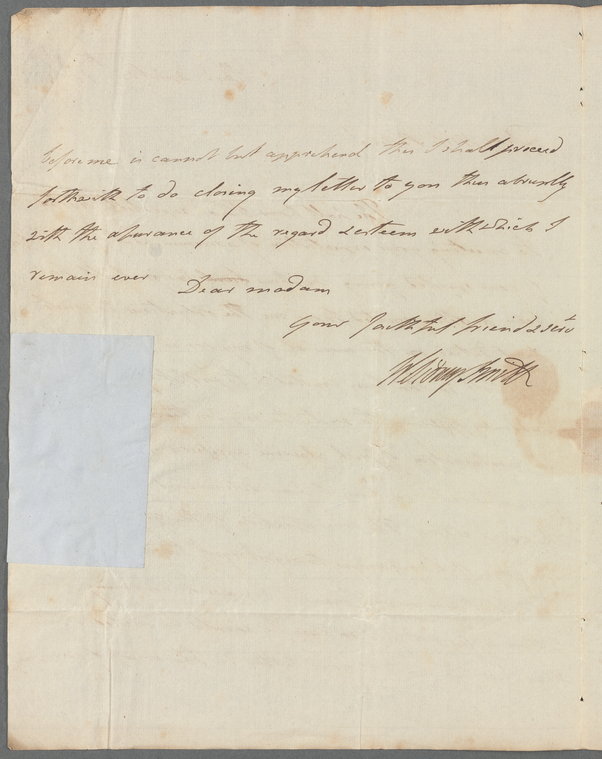 before me is cannot but apprehend this I shall proceed
forthwith to do closing my letter to you thus abruptly
with the assurance of the regard & esteem with which I
remain ever
Dear madam
Your faithful friend & Serv
Wm Sidney Smith